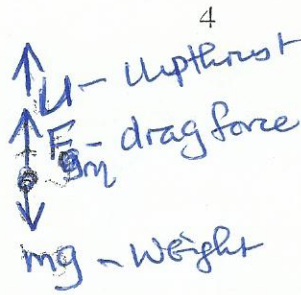 4
U - Upthrust
F - drag force
mg - Weight